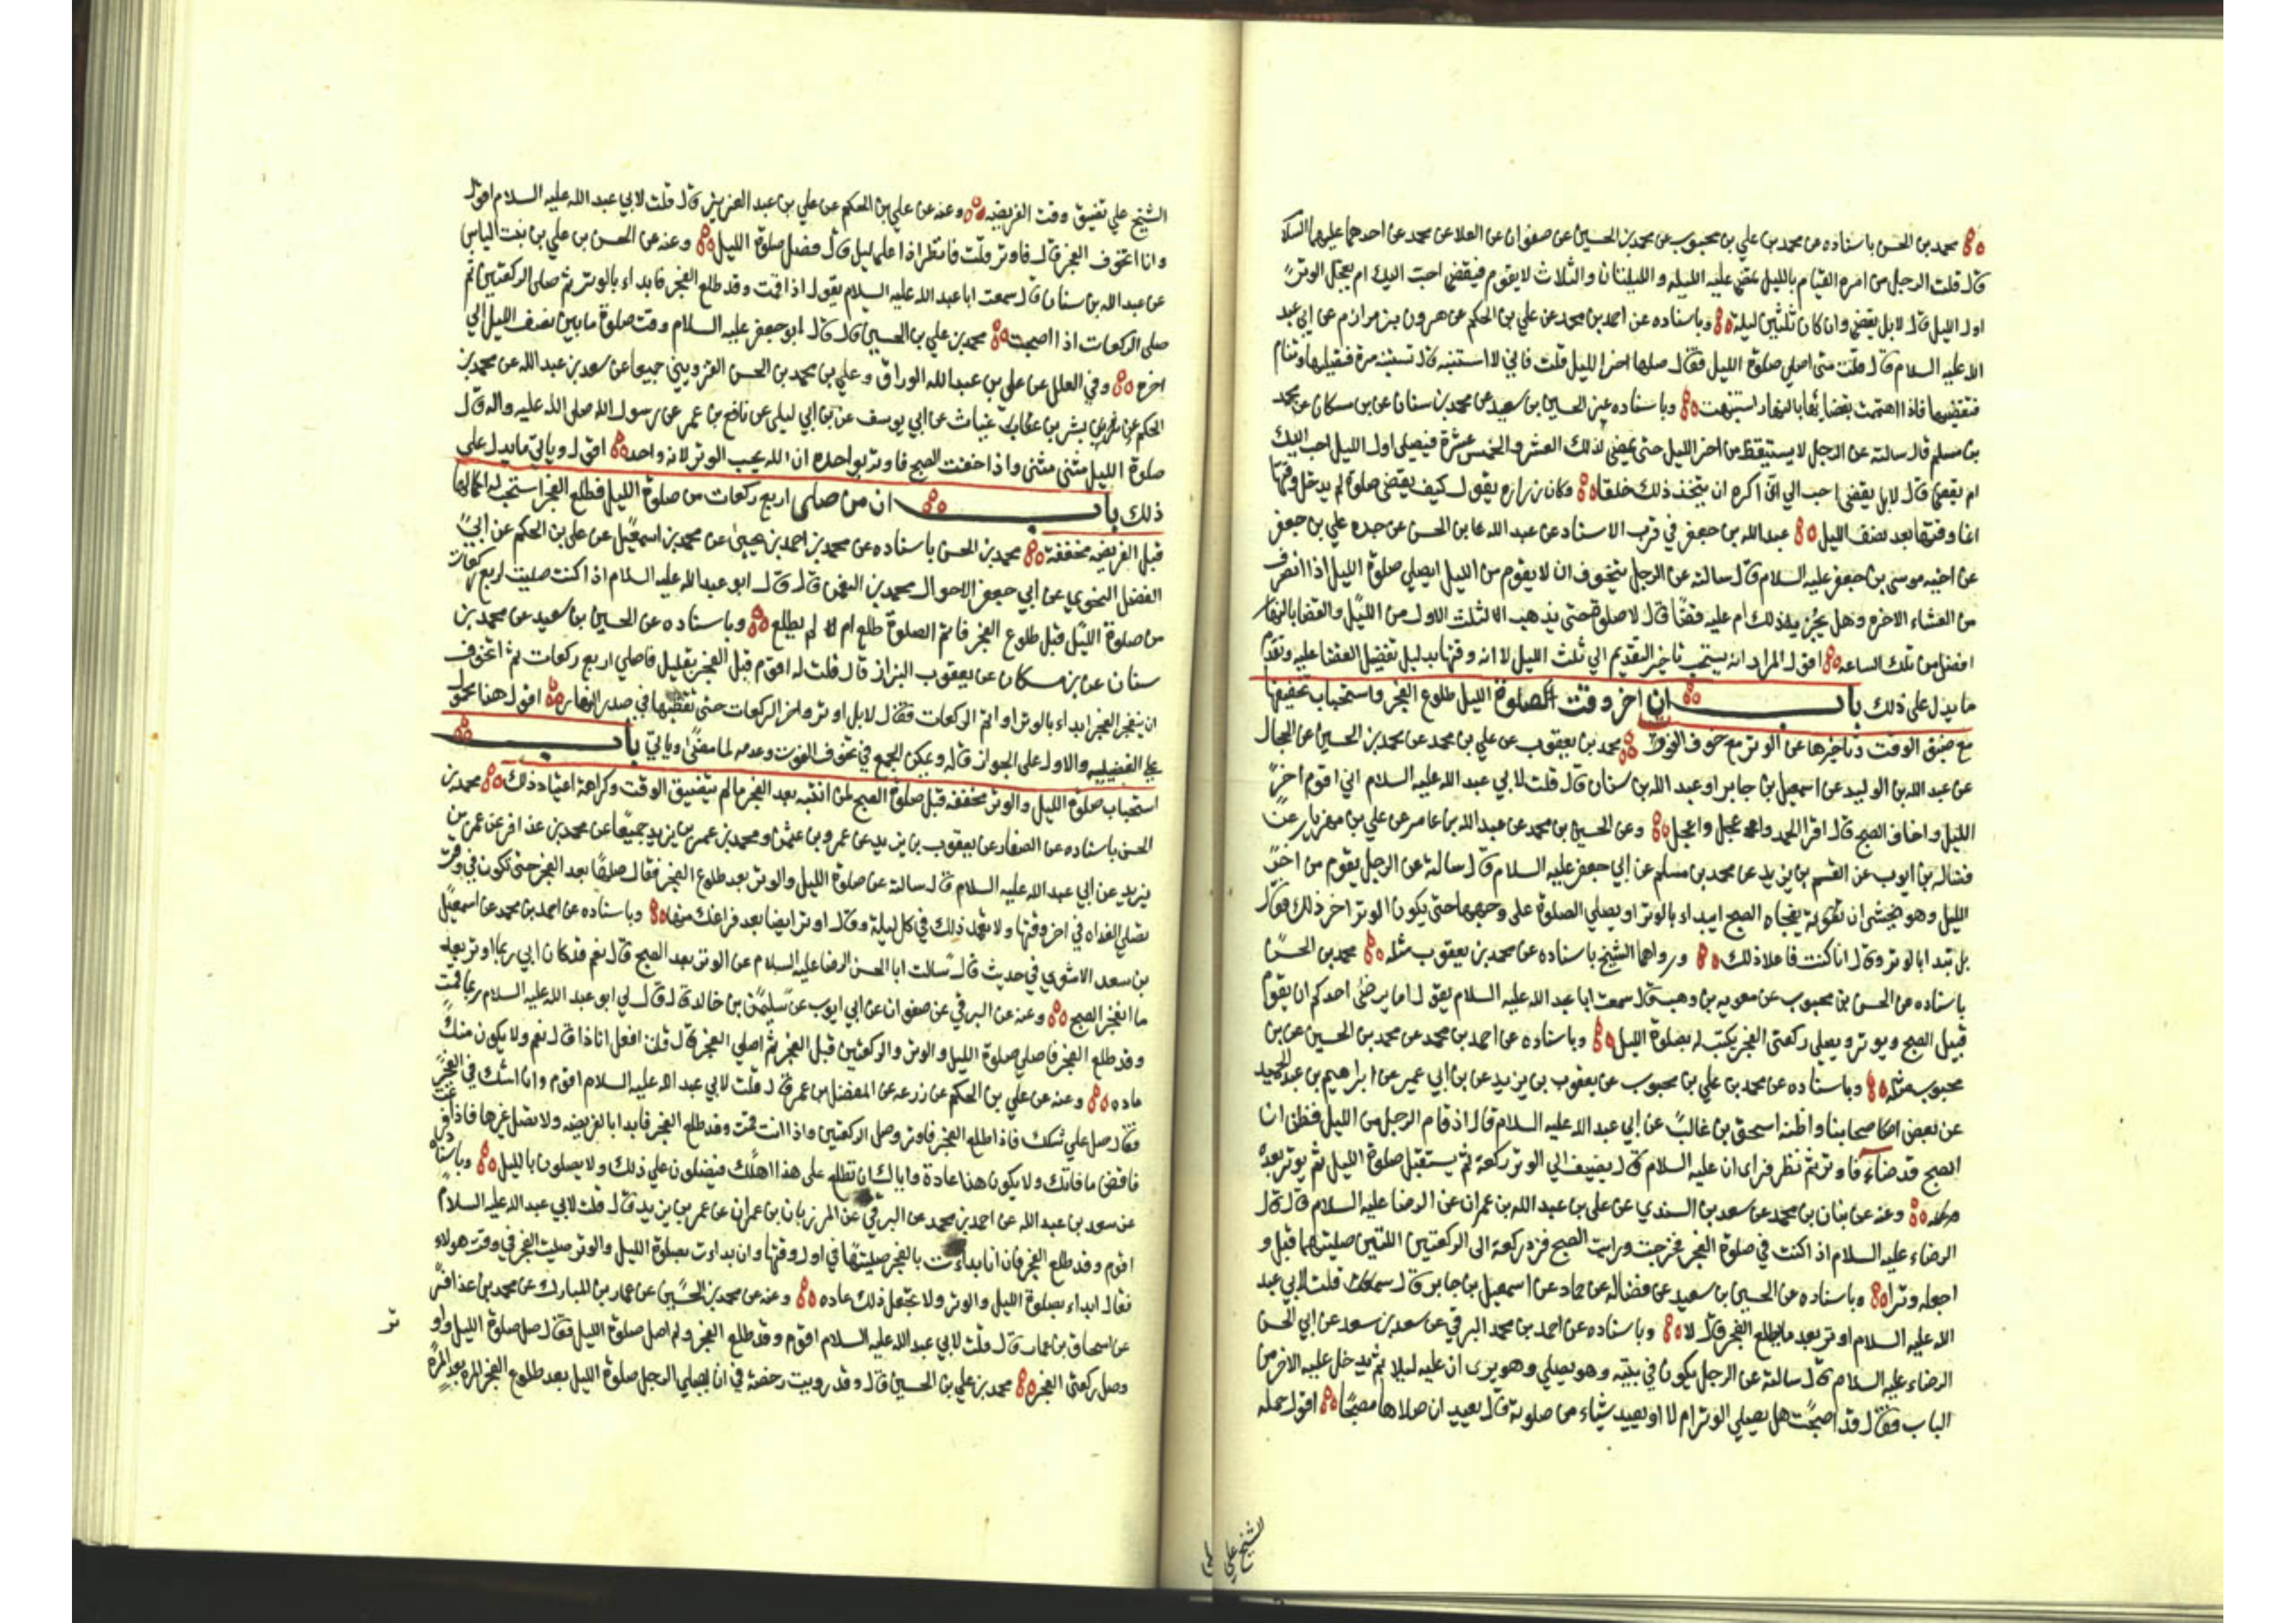 محمد بن الحسن باسناده عن محمد بن علي بن محبوب عن محمد بن الحسين عن صفوان عن العلا عن محمد عن احدهما عليهما السلا
قال قلت الرجل من امره القيام بالليل تمضي عليه الليله والليلتان والثلاث لا يقوم فيقضي احب اليك ام يعجل الوتر
اول الليل قال لا بل يقضي وان كان ثلثين ليلة وباسناده عن احمد بن محمد عن علي بن الحكم عن هرون بن مرازم عن ابي عبد
الله عليه السلام قال قلت متى اصلي صلوة الليل فقال صلها اخر الليل قلت فاني لا استنبه قال تستنبه مرة فتصليها وتنام
فتقضيها فاذا اهتممت بقضائها بالنهار استنبهت وباسناده عن الحسين بن سعيد عن محمد بن سنان عن بن مسكان عن محمد
بن مسلم قال سالته عن الرجل لا يستيقظ من اخر الليل حتى يمضي لذلك العشر والخمس عشرة فيصلي اول الليل احب اليك
ام يقضي قال لا بل يقضي احب الي اني اكره ان يتخذ ذلك خلقا وكان زراره يقول كيف يقضي صلوة لم يدخل وقتها
انما وقتها بعد نصف الليل عبد الله بن جعفر في قرب الاسناد عن عبد الله بن الحسن عن جده علي بن جعفر
عن اخيه موسى بن جعفر عليه السلام قال سالته عن الرجل يتخوف ان لا يقوم من الليل ايصلي صلوة الليل اذا انصرف
من العشاء الاخره وهل يجزيه ذلك ام عليه قضا قال لا صلوة حتى يذهب الثلث الاول من الليل والقضا بالنهار
افضل من تلك الساعه اقول المراد انه يستحب تاخير التقديم الي ثلث الليل لا انه وقتها بدليل تفضيل القضا عليه وتقدم
ما يدل على ذلك باب ان اخر وقت الصلوة الليل طلوع الفجر واستحباب تخفيفها
مع ضيق الوقت وتاخيرها عن الوتر مع خوف الفوت محمد بن يعقوب عن علي بن محمد عن محمد بن الحسين عن الحجال
عن عبد الله بن الوليد عن اسمعيل بن جابر او عبد الله بن سنان قال قلت لابي عبد الله عليه السلام اني اقوم اخر
الليل واخاف الصبح قال اقرا الحمد واعجل واعجل وعن الحسين بن محمد عن عبد الله بن عامر عن علي بن مهزيار عن
فضاله بن ايوب عن القسم بن يزيد عن محمد بن مسلم عن ابي جعفر عليه السلام قال سالته عن الرجل يقوم من اخر
الليل وهو يخشى ان يفجاه الصبح ايبداء بالوتر او يصلي الصلوة على وجهها حتى يكون الوتر اخر ذلك قال
بل تبدا بالوتر وقال انا كنت فاعلا ذلك ورواهما الشيخ باسناده عن محمد بن يعقوب مثله محمد بن الحسن
باسناده عن الحسن بن محبوب عن معويه بن وهب قال سمعت ابا عبد الله عليه السلام يقول اما يرضى احدكم ان يقوم
قبل الصبح ويوتر ويصلي ركعتي الفجر يكتب له بصلوة الليل وباسناده عن احمد بن محمد عن محمد بن الحسين عن بن
محبوب مثله وباسناده عن محمد بن علي بن محبوب عن يعقوب بن يزيد عن بن ابي عمير عن ابراهيم بن عبد الحميد
عن بعض اصحابنا واظنه اسحق بن غالب عن ابي عبد الله عليه السلام قال اذ قام الرجل من الليل فظن ان
الصبح قد ضاء فاوتر ثم نظر فراى ان عليه السلام قال يضيف الي الوتر ركعة ثم يستقبل صلوة الليل ثم يوتر بعده
وعنه عن بنان بن محمد عن سعد بن السندي عن علي بن عبد الله بن عمران عن الرضا عليه السلام قال قال
الرضاء عليه السلام اذا كنت في صلوة الفجر فخرجت ورايت الصبح فزد ركعة الى الركعتين اللتين صليتهما قبل و
اجعله وترا وباسناده عن الحسين بن سعيد عن فضاله عن حماد عن اسمعيل بن جابر قال قلت لابي عبد
الله عليه السلام اوتر بعد ما يطلع الفجر قال لا وباسناده عن احمد بن محمد البرقي عن سعد بن سعد عن ابي الحسن
الرضاء عليه السلام قال سالته عن الرجل يكون في بيته وهو يصلي وهو يرى ان عليه ليلا ثم يدخل عليه الاخر من
الباب فقال قد اصبحت هل يصلي الوتر ام لا او يعيد شياء من صلوته قال يعيد ان صلاها مصبحا اقول حمله
الشيخ علي
الشيخ علي تضيق وقت الفريضه وعنه عن علي بن الحكم عن علي بن عبد العزيز قال قلت لابي عبد الله عليه السلام اقول
وانا اتخوف الفجر قال فاوتر قلت فانظر اذا علي ليل قال فصل صلوة الليل وعنه عن الحسن بن علي بن بنت الياس
عن عبد الله بن سنان قال سمعت ابا عبد الله عليه السلام يقول اذا قمت وقد طلع الفجر فابداء بالوتر ثم صلى الركعتين ثم
صلى الركعات اذا اصبحت محمد بن علي بن الحسين قال قال ابو جعفر عليه السلام وقت صلوة ما بين نصف الليل الي
اخره وفي العلل عن علي بن عبد الله الوراق وعلي بن محمد بن الحسن القزويني جميعا عن سعد بن عبد الله عن محمد بن
الحكم عن بشر بن غياث عن ابي يوسف عن بن ابي ليلى عن نافع بن عمر عن رسول الله صلى الله عليه واله قال
صلوة الليل مثنى مثنى واذا خفت الصبح فاوتر بواحده ان الله يحب الوتر لانه واحد اقول وياتي ما يدل على
ذلك باب ان من صلى اربع ركعات من صلوة الليل فطلع الفجر استحب له اكمالها
قبل الفريضه مخففة محمد بن الحسن باسناده عن محمد بن احمد بن يحيى عن محمد بن اسمعيل عن علي بن الحكم عن ابي
الفضل النحوي عن ابي جعفر الاحوال محمد بن النعمن قال قال ابو عبد الله عليه السلام اذا كنت صليت اربع ركعات
من صلوة الليل قبل طلوع الفجر فاتم الصلوة طلع ام لم يطلع وباسناده عن الحسين بن سعيد عن محمد بن
سنان عن بن مسكان عن يعقوب البزاز قال قلت له اقوم قبل الفجر بقليل فاصلي اربع ركعات ثم اتخوف
ان ينفجر الفجر ابداء بالوتر او اتم الركعات فقال لا بل اوتر واخر الركعات حتى تقضيها في صدر النهار اقول هذا محمول
على الفضيله والاول على الجواز قاله ويمكن الجمع في تخوف الفوت وعدمه لما مضى وياتي باب
استحباب صلوة الليل والوتر مخففة قبل صلوة الصبح لمن انتبه بعد الفجر ما لم يتضيق الوقت وكراهة اعتياد ذلك محمد بن
الحسن باسناده عن الصفار عن يعقوب بن يزيد عن عمرو بن عثمن ومحمد بن عمر بن يزيد جميعا عن محمد بن عذافر عن عمر بن
يزيد عن ابي عبد الله عليه السلام قال سالته عن صلوة الليل والوتر بعد طلوع الفجر فقال صلها بعد الفجر حتى تكون في وقت
تصلي الغداه في اخر وقتها ولا تعمد ذلك في كل ليلة وقال اوتر ايضا بعد فراغك منها وباسناده عن احمد بن محمد عن اسمعيل
بن سعد الاشعري في حديث قال سالت ابا الحسن الرضا عليه السلام عن الوتر بعد الصبح قال نعم قد كان ابي ربما اوتر بعد
ما انفجر الصبح وعنه عن البرقي عن صفوان عن ابي ايوب عن سليمن بن خالد قال قال لي ابو عبد الله عليه السلام ربما قمت
وقد طلع الفجر فاصلي صلوة الليل والوتر والركعتين قبل الفجر ثم اصلي الفجر قال قلت افعل انا ذا قال نعم ولا يكون منك
عاده وعنه عن علي بن الحكم عن زرعه عن المفضل بن عمر قال قلت لابي عبد الله عليه السلام اقوم وانا اشك في الفجر
فقال صل علي شكك فاذا طلع الفجر فاوتر وصل الركعتين واذا انت قمت وقد طلع الفجر فابدا بالفريضه ولا تصل غيرها فاذا فرغت
فاقض ما فاتك ولا يكون هذا عادة واياك ان تطلع على هذا اهلك فيصلون علي ذلك ولا يصلون بالليل وباسناده
عن سعد بن عبد الله عن احمد بن محمد عن البرقي عن المرزبان بن عمران عن عمر بن يزيد قال قلت لابي عبد الله عليه السلام
اقوم وقد طلع الفجر فان انا بداءت بالفجر صليتها في اول وقتها وان بداءت بصلوة الليل والوتر صليت الفجر في وقت هولاء
فقال ابداء بصلوة الليل والوتر ولا تجعل ذلك عاده وعنه عن محمد بن الحسين عن عمار بن المبارك عن محمد بن عذافر
عن اسحاق بن عمار قال قلت لابي عبد الله عليه السلام اقوم وقد طلع الفجر ولم اصل صلوة الليل فقال صل صلوة الليل واو
تر
وصل ركعتي الفجر محمد بن علي بن الحسين قال وقد رويت رخصة في ان يصلي الرجل صلوة الليل بعد طلوع الفجر المرة بعد المرة